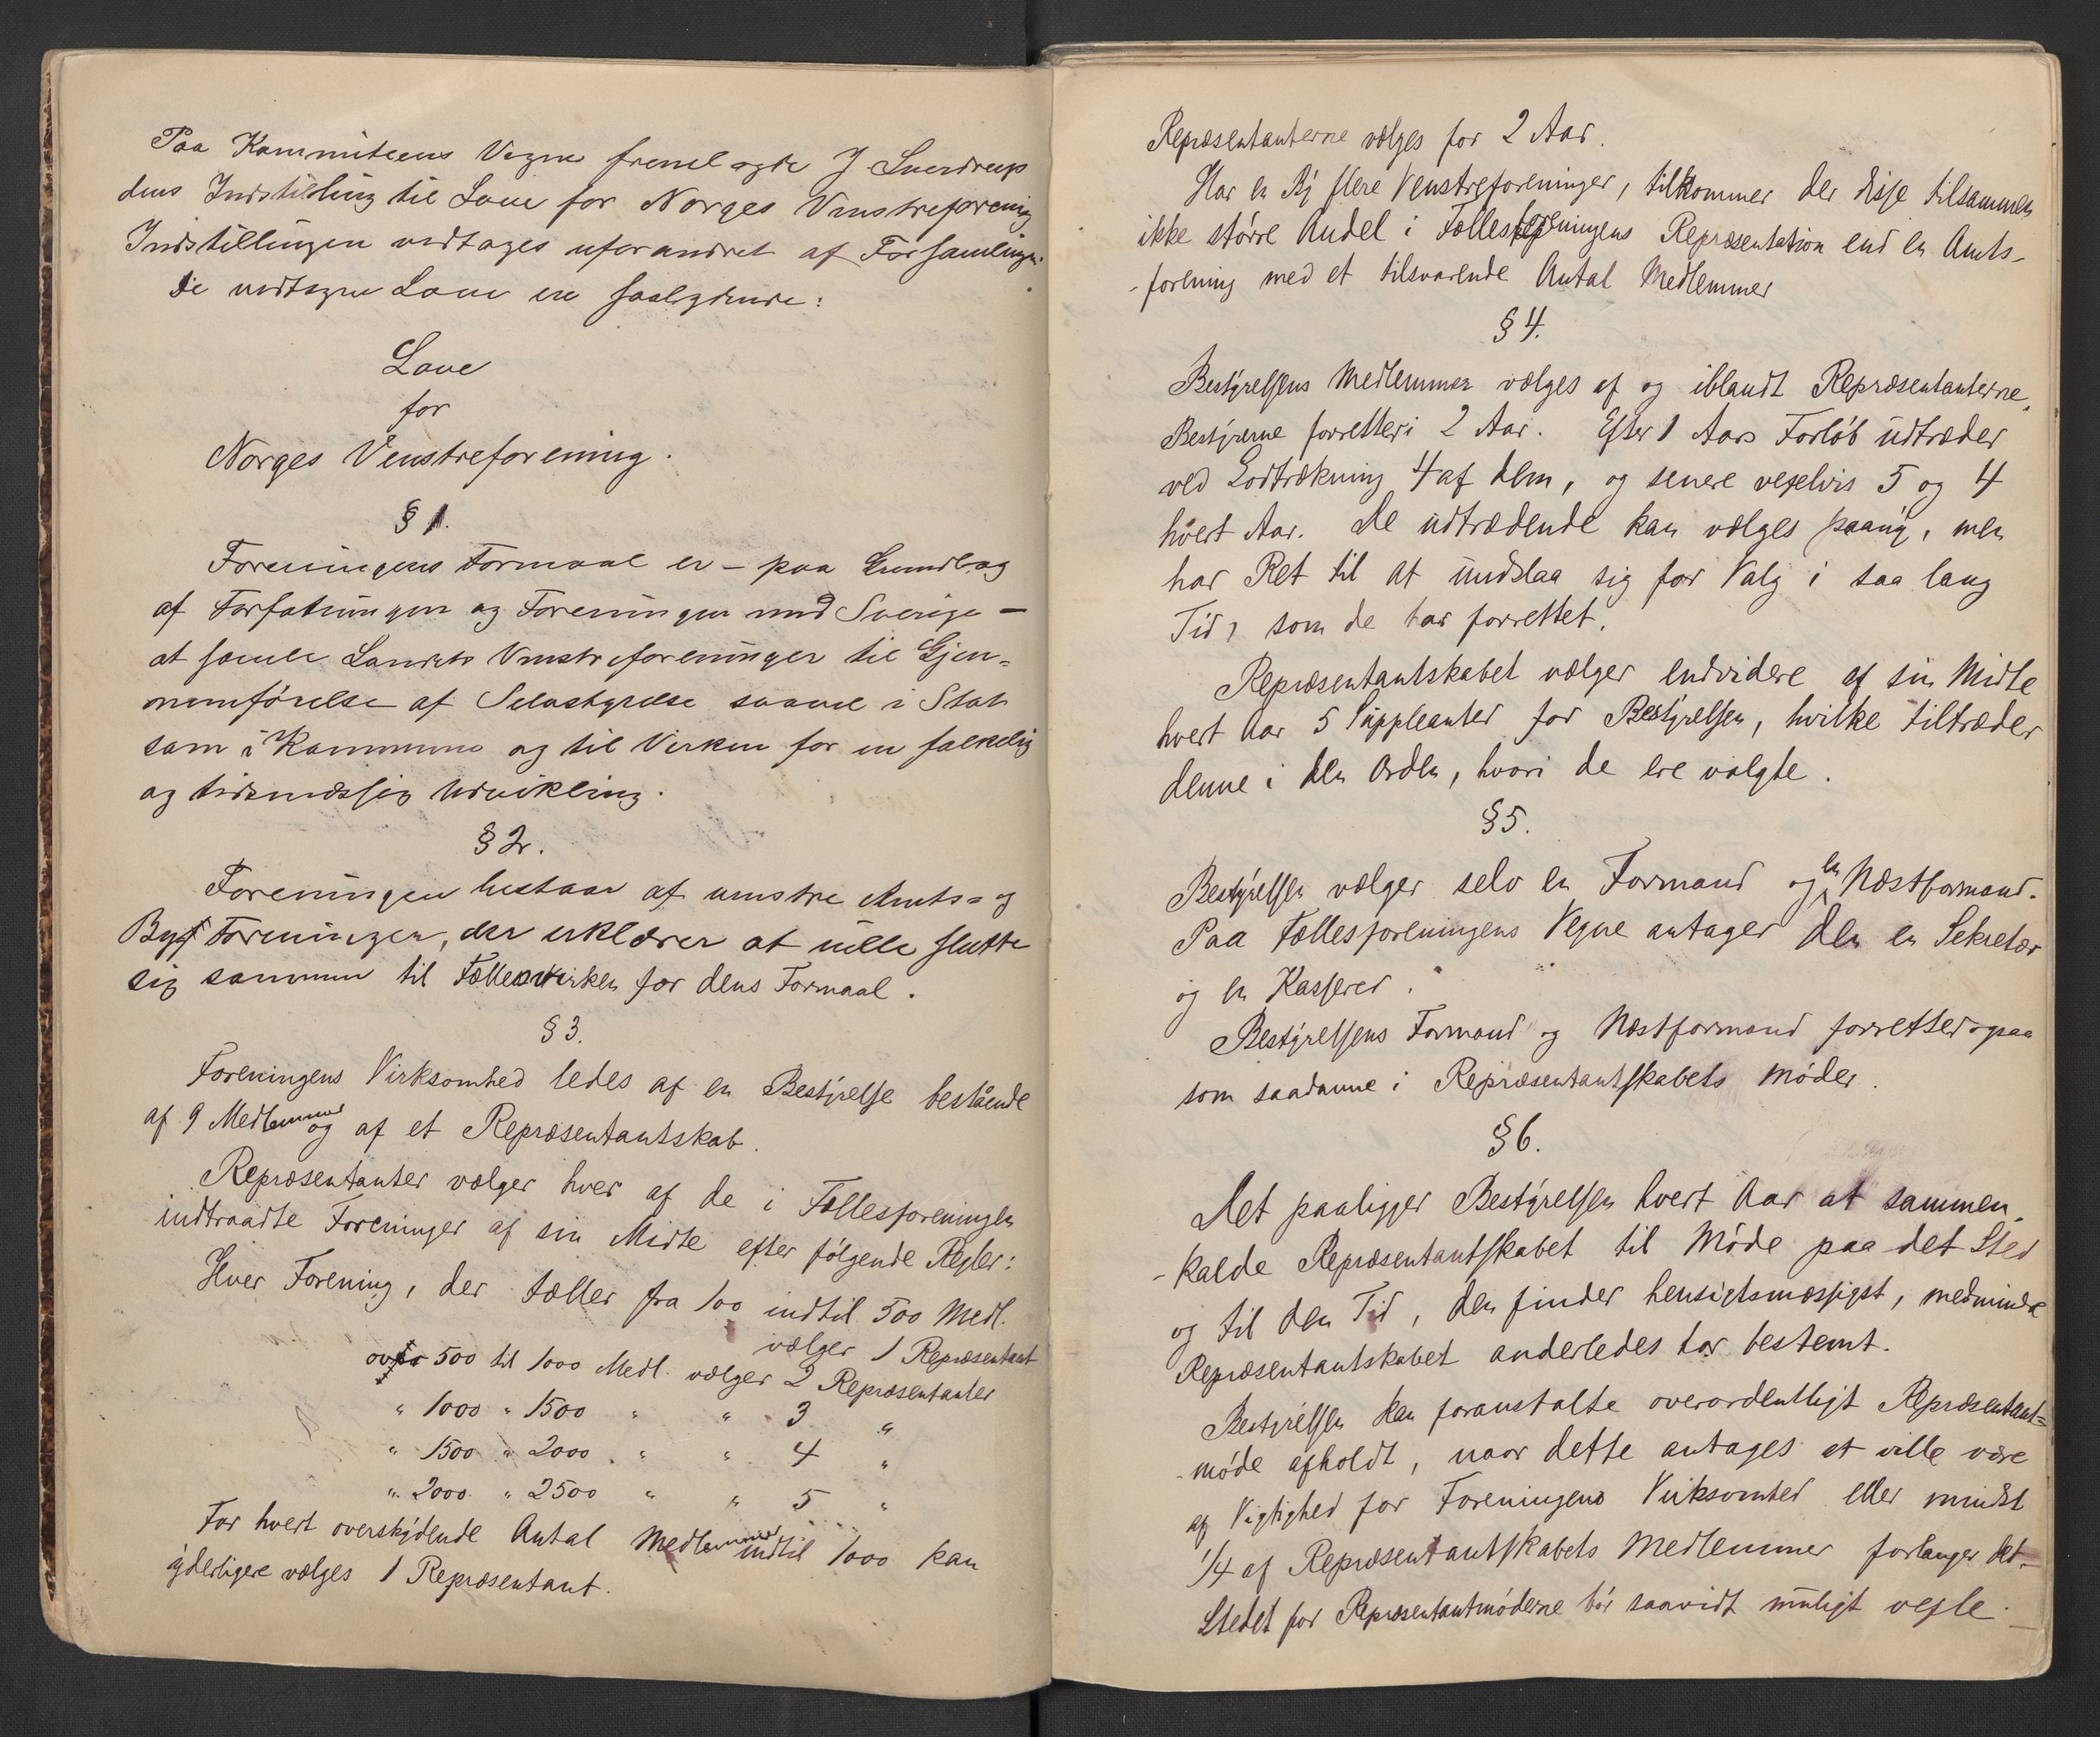 Paa Kommiteens Vegne fremlagde J Sverdrup
dens Indstilling til Love for Norges Venstreforening
Indstillingen vedtages uforandret af Forsamlingen.
De vedtagne Love ere saalydende:
Love
for
Norges Venstreforening.
§ 1.
Foreningens Formaal er – paa Grundlag
af Forfatningen og Foreningen med Sverige –
at samle Landets Venstreforeninger til Gjen=
nemførelse af Selvstyrelse saavel i Stat
som i Kommune og til Virken for en folkelig
og tidsmæssig Udvikling.
§ 2.
Foreningen bestaar af venstre Amts= og
By Foreninger, der erklærer at ville slutte
sig sammen til Fællesvirken for dens Formaal.
§ 3.
Foreningens Virksomhed ledes af en Bestyrelse bestående
af 9 Medlemmer og af et Repræsentantskab.
Repræsentanter vælger hver af de i Fællesforeningen
indtraadte Foreninger af sin Midte efter følgende Regler:
Hver Forening, der tæller fra 100 indtil 500 Medl.
vælger 1 Repræsentant
over 500 til 1000 Medl. vælger 2 Repræsentanter
" 1000 " 1500 " " 3 "
" 1500 " 2000 " " 4 "
" 2000 " 2500 " " 5 "
For hvert overskydende Antal Medlemmer indtil 1000 kan
yderligere vælges 1 Repræsentant.
Repræsentanterne vælges for 2 Aar.
Har en By flere Venstreforeninger, tilkommer der disse tilsammen
ikke større Andel i Fællesforeningens Repræsentation end en Amts-
-forening med et tilsvarende Antal Medlemmer
§ 4.
Bestyrelsens Medlemmer vælges af og iblandt Repræsentanterne.
Bestyrerne forretter i 2 Aar. Efter 1 Aars Forløb udtræder
ved Lodtrækning 4 af dem, og senere vexelvis 5 og 4
hvert Aar. De udtrædende kan vælges paany, men
har Ret til at undslaa sig for Valg i saa lang
Tid, som de har forrettet.
Repræsentantskabet vælger endvidere af sin Midte
hvert Aar 5 Suppleanter for Bestyrelsen, hvilke tiltræder
denne i den Orden, hvori de ere valgte.
§ 5.
Bestyrelsen vælger selv en Formand og en Næstformand.
Paa Fællesforeningens Vegne antager den en Sekretær
og en Kasserer.
Bestyrelsens Formand og Næstformand forretter ogsaa
som saadanne i Repræsentantskabets Møder.
§ 6.
Det paaligger Bestyrelsen hvert Aar at sammen-
-kalde Repræsentantskabet til Møde paa det Sted
og til den Tid, den finder hensigtsmæssigst, medmindre
Repræsentantskabet anderledes har bestemt.
Bestyrelsen kan foranstalte overordentligt Repræsentant=
-møde afholdt, naar dette antages at ville være
af Vigtighed for Foreningens Virksomhed eller mindst
1/4 af Repræsentantskabets Medlemmer forlanger det.
Stedet for Repræsentantmøderne bør saavidt muligt vexle.